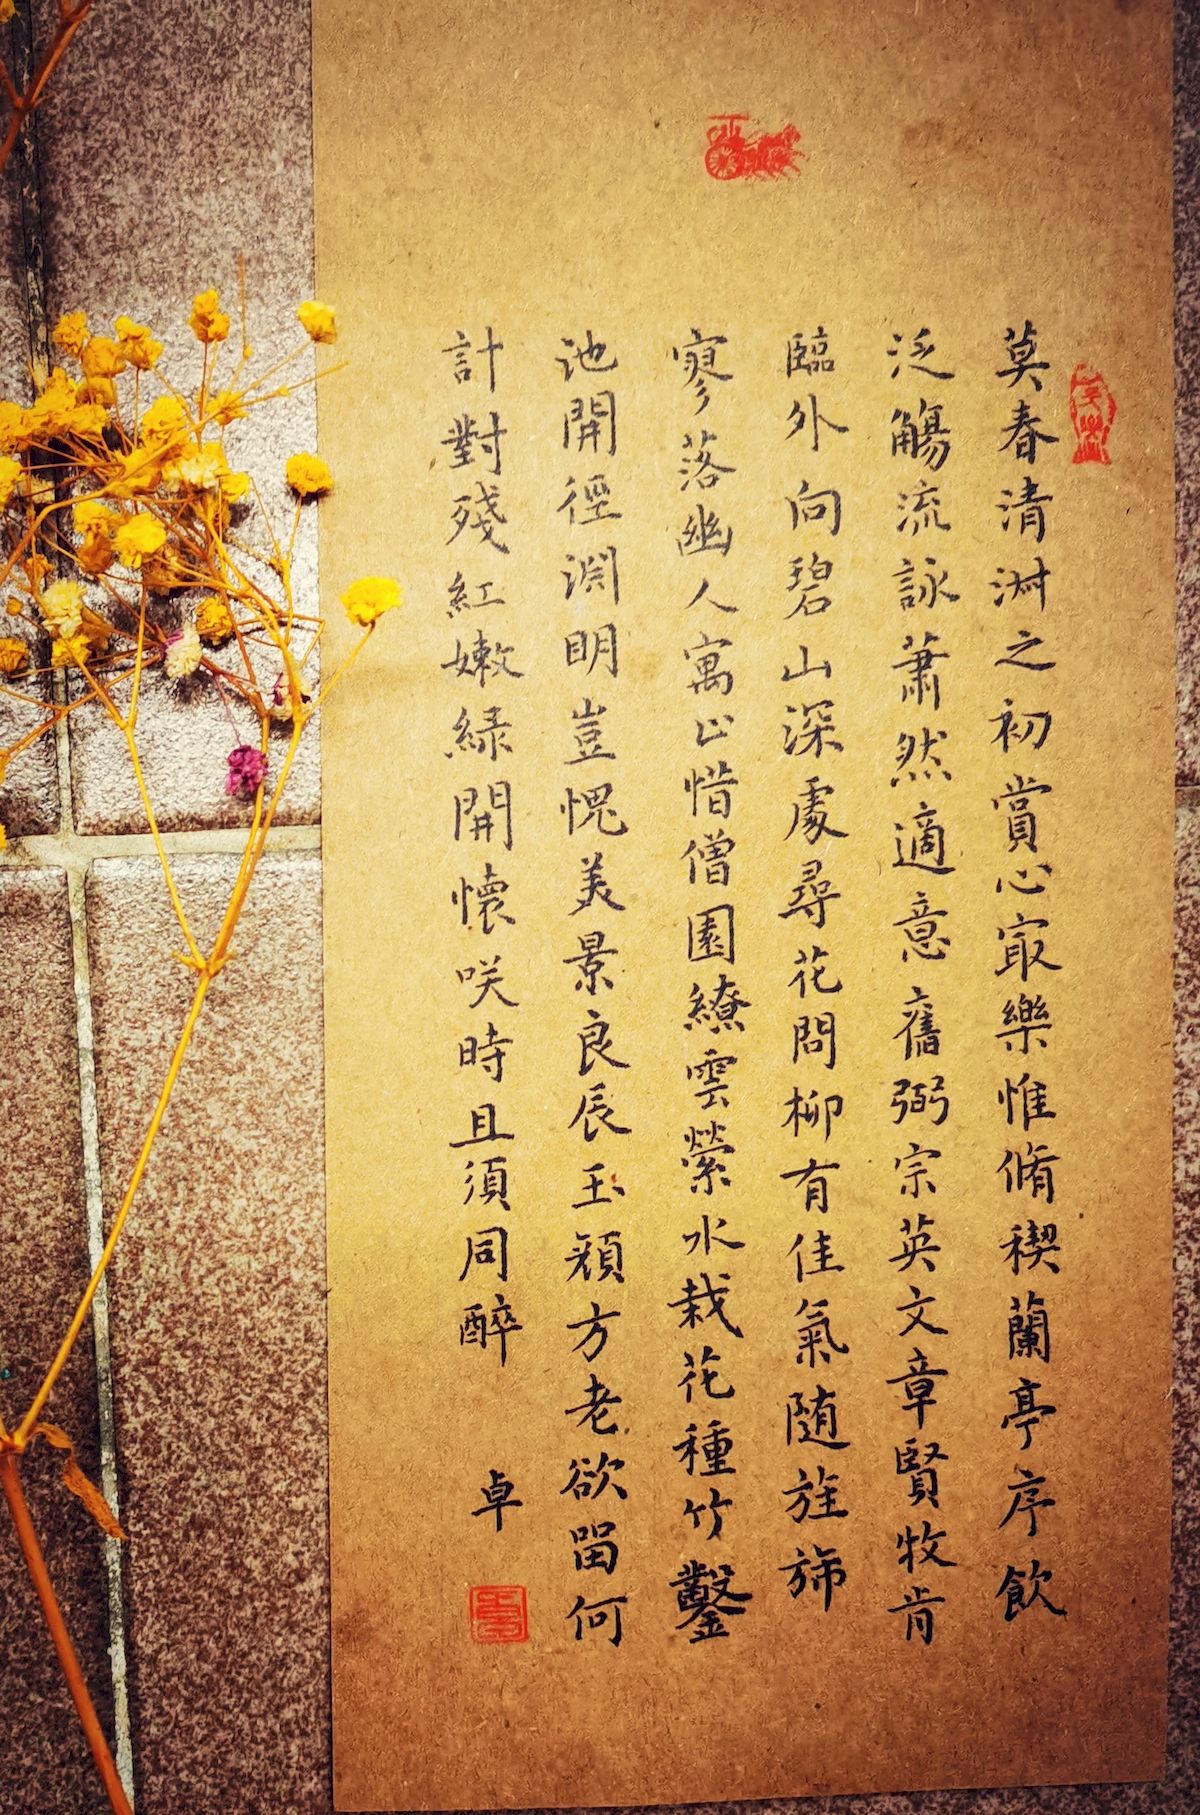 莫春清淑之初賞心冣樂惟脩禊蘭亭序飲
泛觴流詠蕭然適意舊弼宗英文章賢牧肯
臨外向碧山深處尋花問柳有佳氣随旌旆
寥落幽人寓止惜僧園繚雲縈水栽花種竹鑿
池開徑淵明豈愧美景良辰玉頹方老欲畱何
計對殘紅嫩綠開懷咲時且須同醉
卓